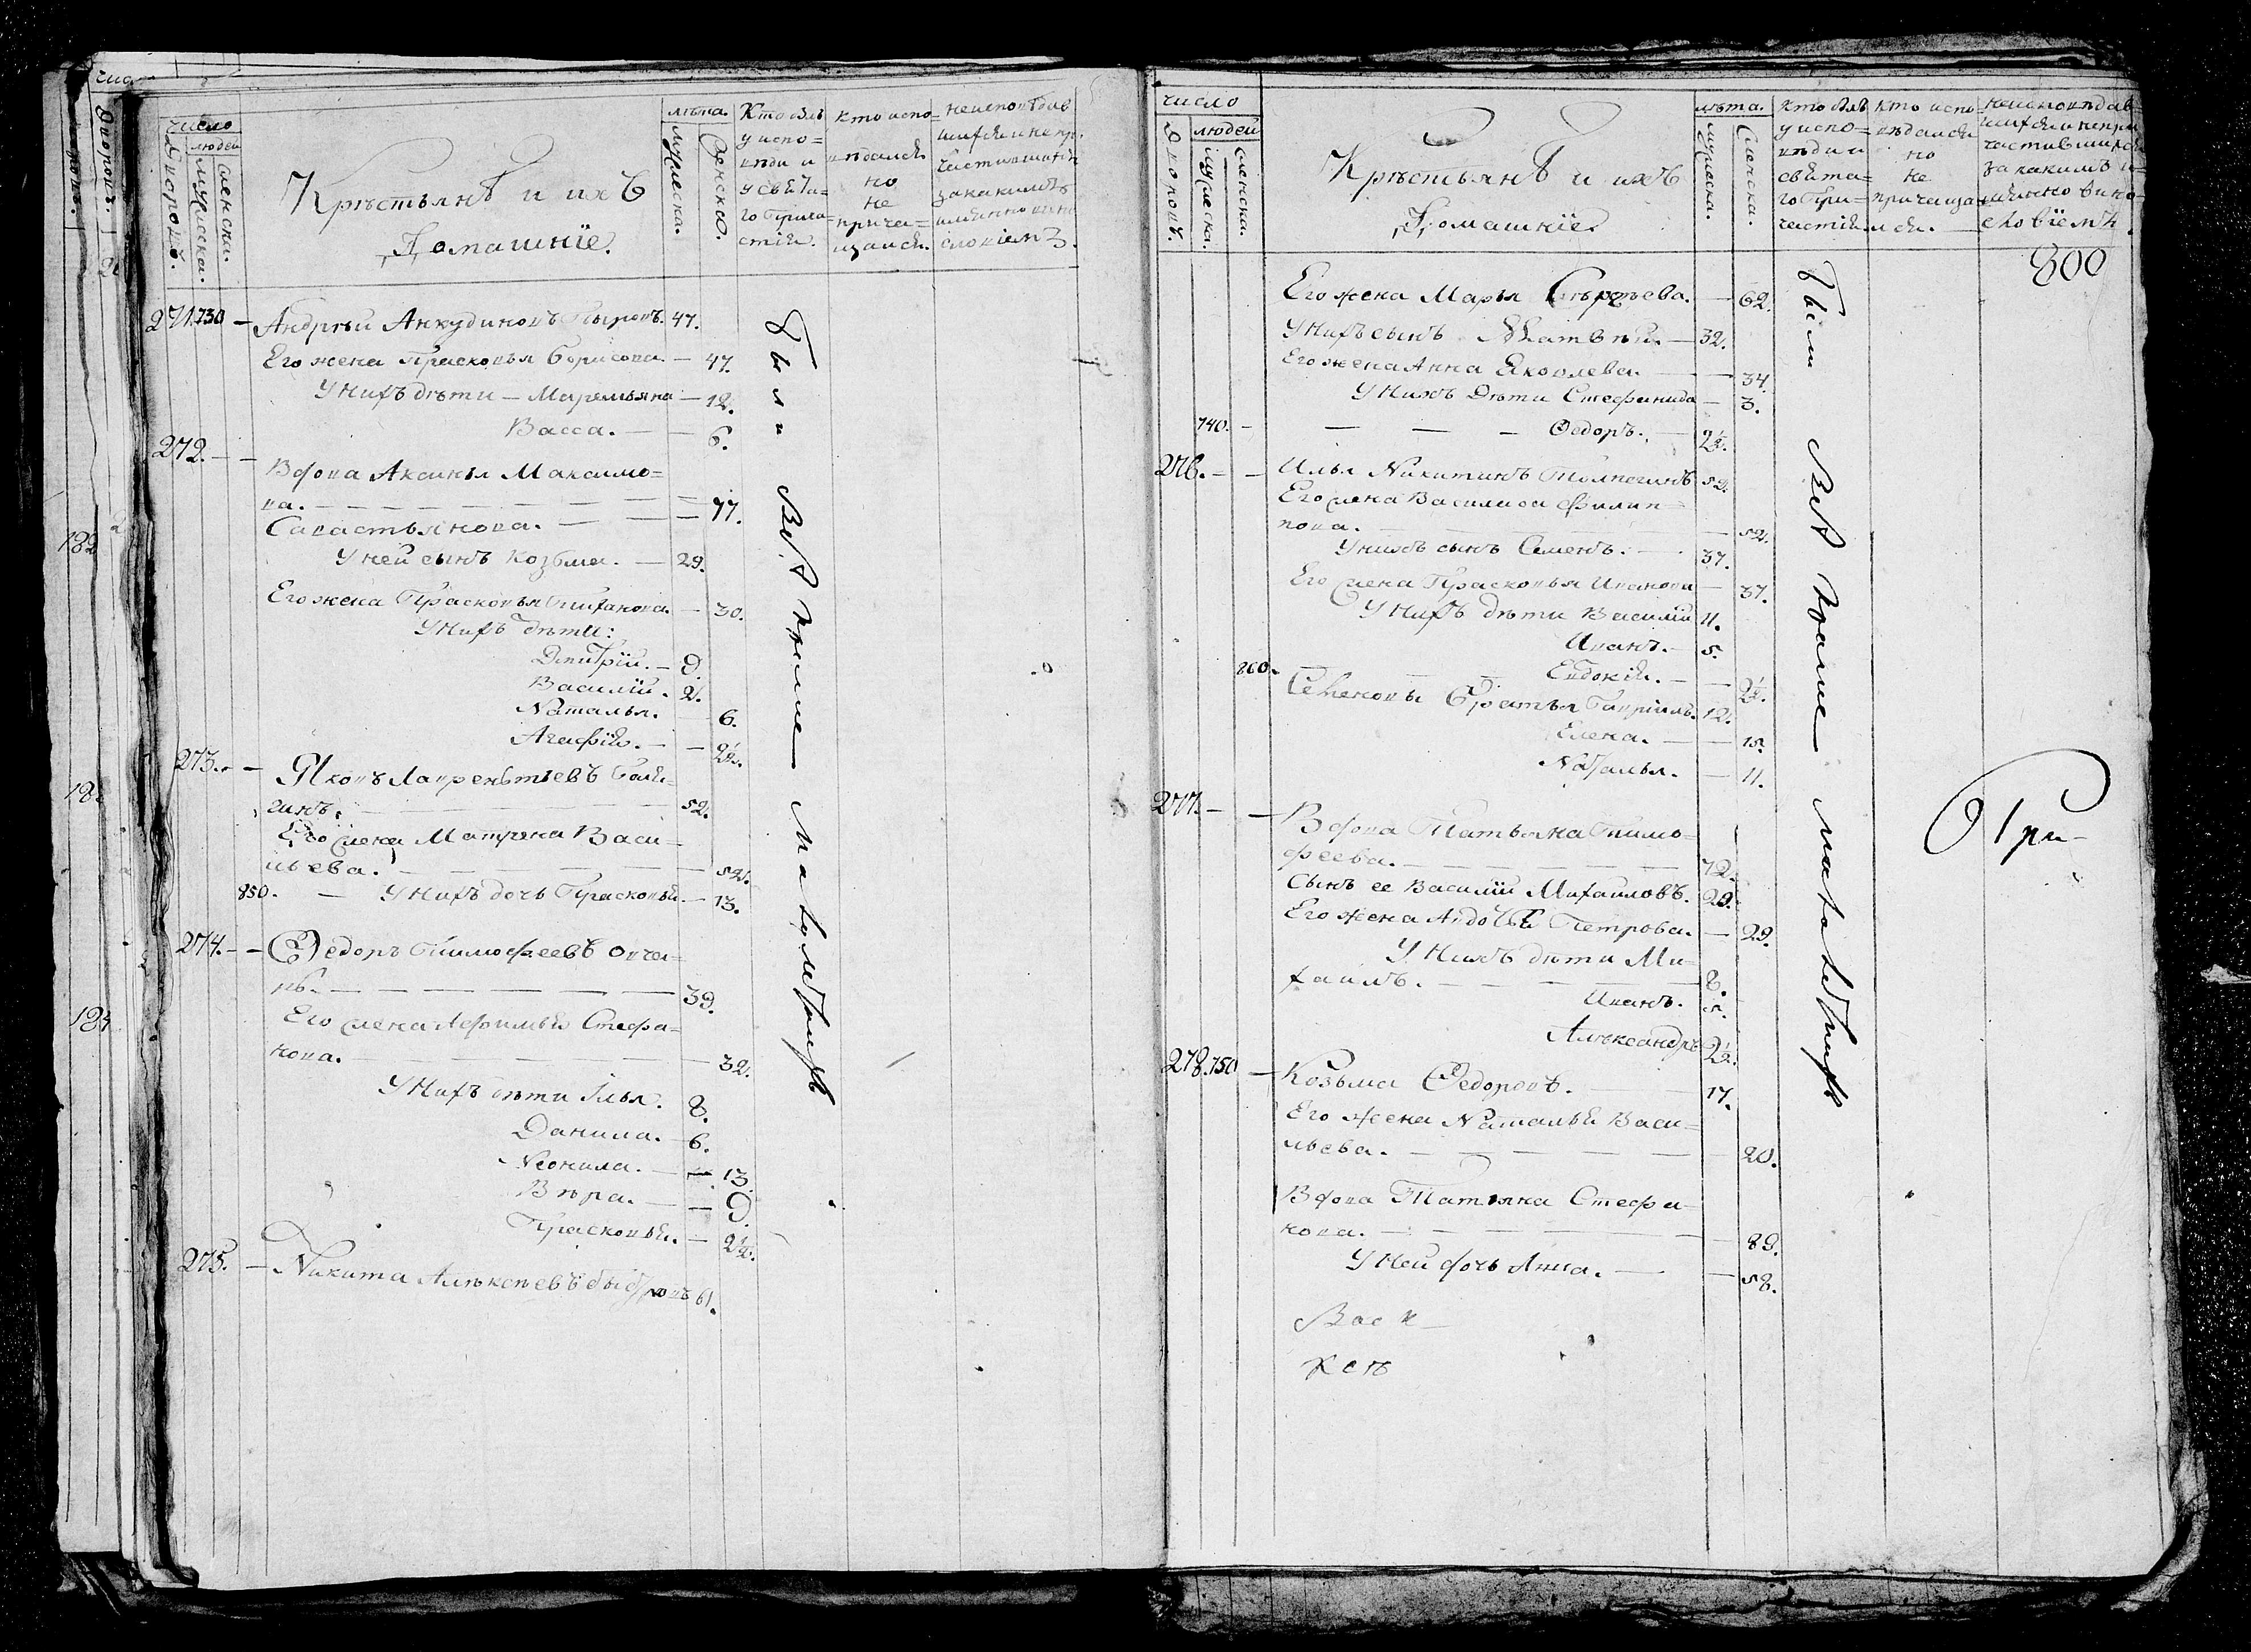 число
людей
Дворовъ.
мужеска.
женска.
Крѣстьянѣ и ихъ
Домашніе.
лѣта.
мужеска.
Женско.
Кто былъ
у испо=
вѣди и
у свята=
го Прича=
стія.
кто испо=
вѣдался
но
не
прича=
щался.
неисповѣдав
шихся и непр.
частившихся
закакимъ
имянно вин
словіемъ.
271. 730 — Андрѣй Анкудиновъ 47.
Его жена Прасковья Борисова. — 47.
У нихъ дѣти — Маремьяна — 12.
Васса. — — 6.
272. — —
Вдова Аксинья Максимо=
ва. — — — — — 77.
Савастьянова. — — —
У ней сынъ Козьма. — 29.
Его жена Прасковья — 30.
У нихъ дѣти:
Дмитрій. — 9.
Василій. 2.
Наталья. — 6.
Агафія. — — 2½.
273. — — Яковъ Лаврентьевъ
гинъ. — — — 52.
Его жена Матрена Васи=
льева. — — — — 52.
850. — У нихъ дочь Прасковья — 13.
274. — — Федоръ Тимофеевъ Овча=
— — — — — 39.
Его жена Афимья Стефа=
нова. — — — — 32.
У нихъ дѣти Илья. 8.
Данила. — 6.
Неонила. — — 13.
Вѣра. — — 9.
Прасковья. — 2½.
275. — Никита Алѣксѣевъ 61.
Были всѣ
число
людей
Дворовъ.
мужеска.
женска.
Крѣстьянѣ и ихъ
Домашніе.
лѣта.
мужеска.
Женска.
кто былъ
у испо=
вѣди и
свята=
го При=
частія
кто испо
вѣдался
но
не
причаща=
лся.
неисповѣдав
шихся и непри
частившихся
за какимъ и=
мянно вино=
словіемъ
800
Его жена Марья — 62.
У нихъ сынъ Матвѣй. — 32.
Его жена Анна Яковлева. — — 34.
У нихъ Дѣти Стефанида — 3.
740. — — — — Федоръ. — 2½.
276. — — Илья Никитинъ 52.
Его жена Василиса Филип=
пова. — — — 52.
У нихъ сынъ Семенъ. — 37.
Его жена Прасковья Иванова — 37.
У нихъ дѣти Василій 11.
Иванъ. — 5.
860. — — — Евдокія. — — 2½.
Семеновы Братья Гаврилъ. 12.
Елена. — — 15.
Наталья. — 11.
277. — — Вдова Татьяна Тимо=
феева. — — — — 72.
Сынъ ее Василій Михаиловъ. 29.
Его жена Авдотья Петрова. — 29.
У нихъ дѣти Ми=
хаилъ. — — — 8.
Иванъ. 5.
Алѣксандръ 2½.
278. 750 — Козьма Федоровъ. — 17.
Его жена Наталья Васи=
льева. — — — — 20.
Вдова Татьяна Стефа=
нова. — — — — 89.
У ней дочь Анна. — — 58.
Были всѣ